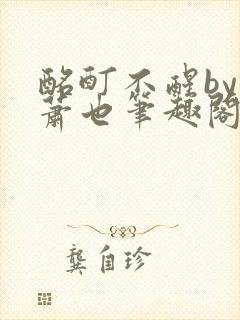 酩酊不醒by
萧也笔趣阁
龚自珍